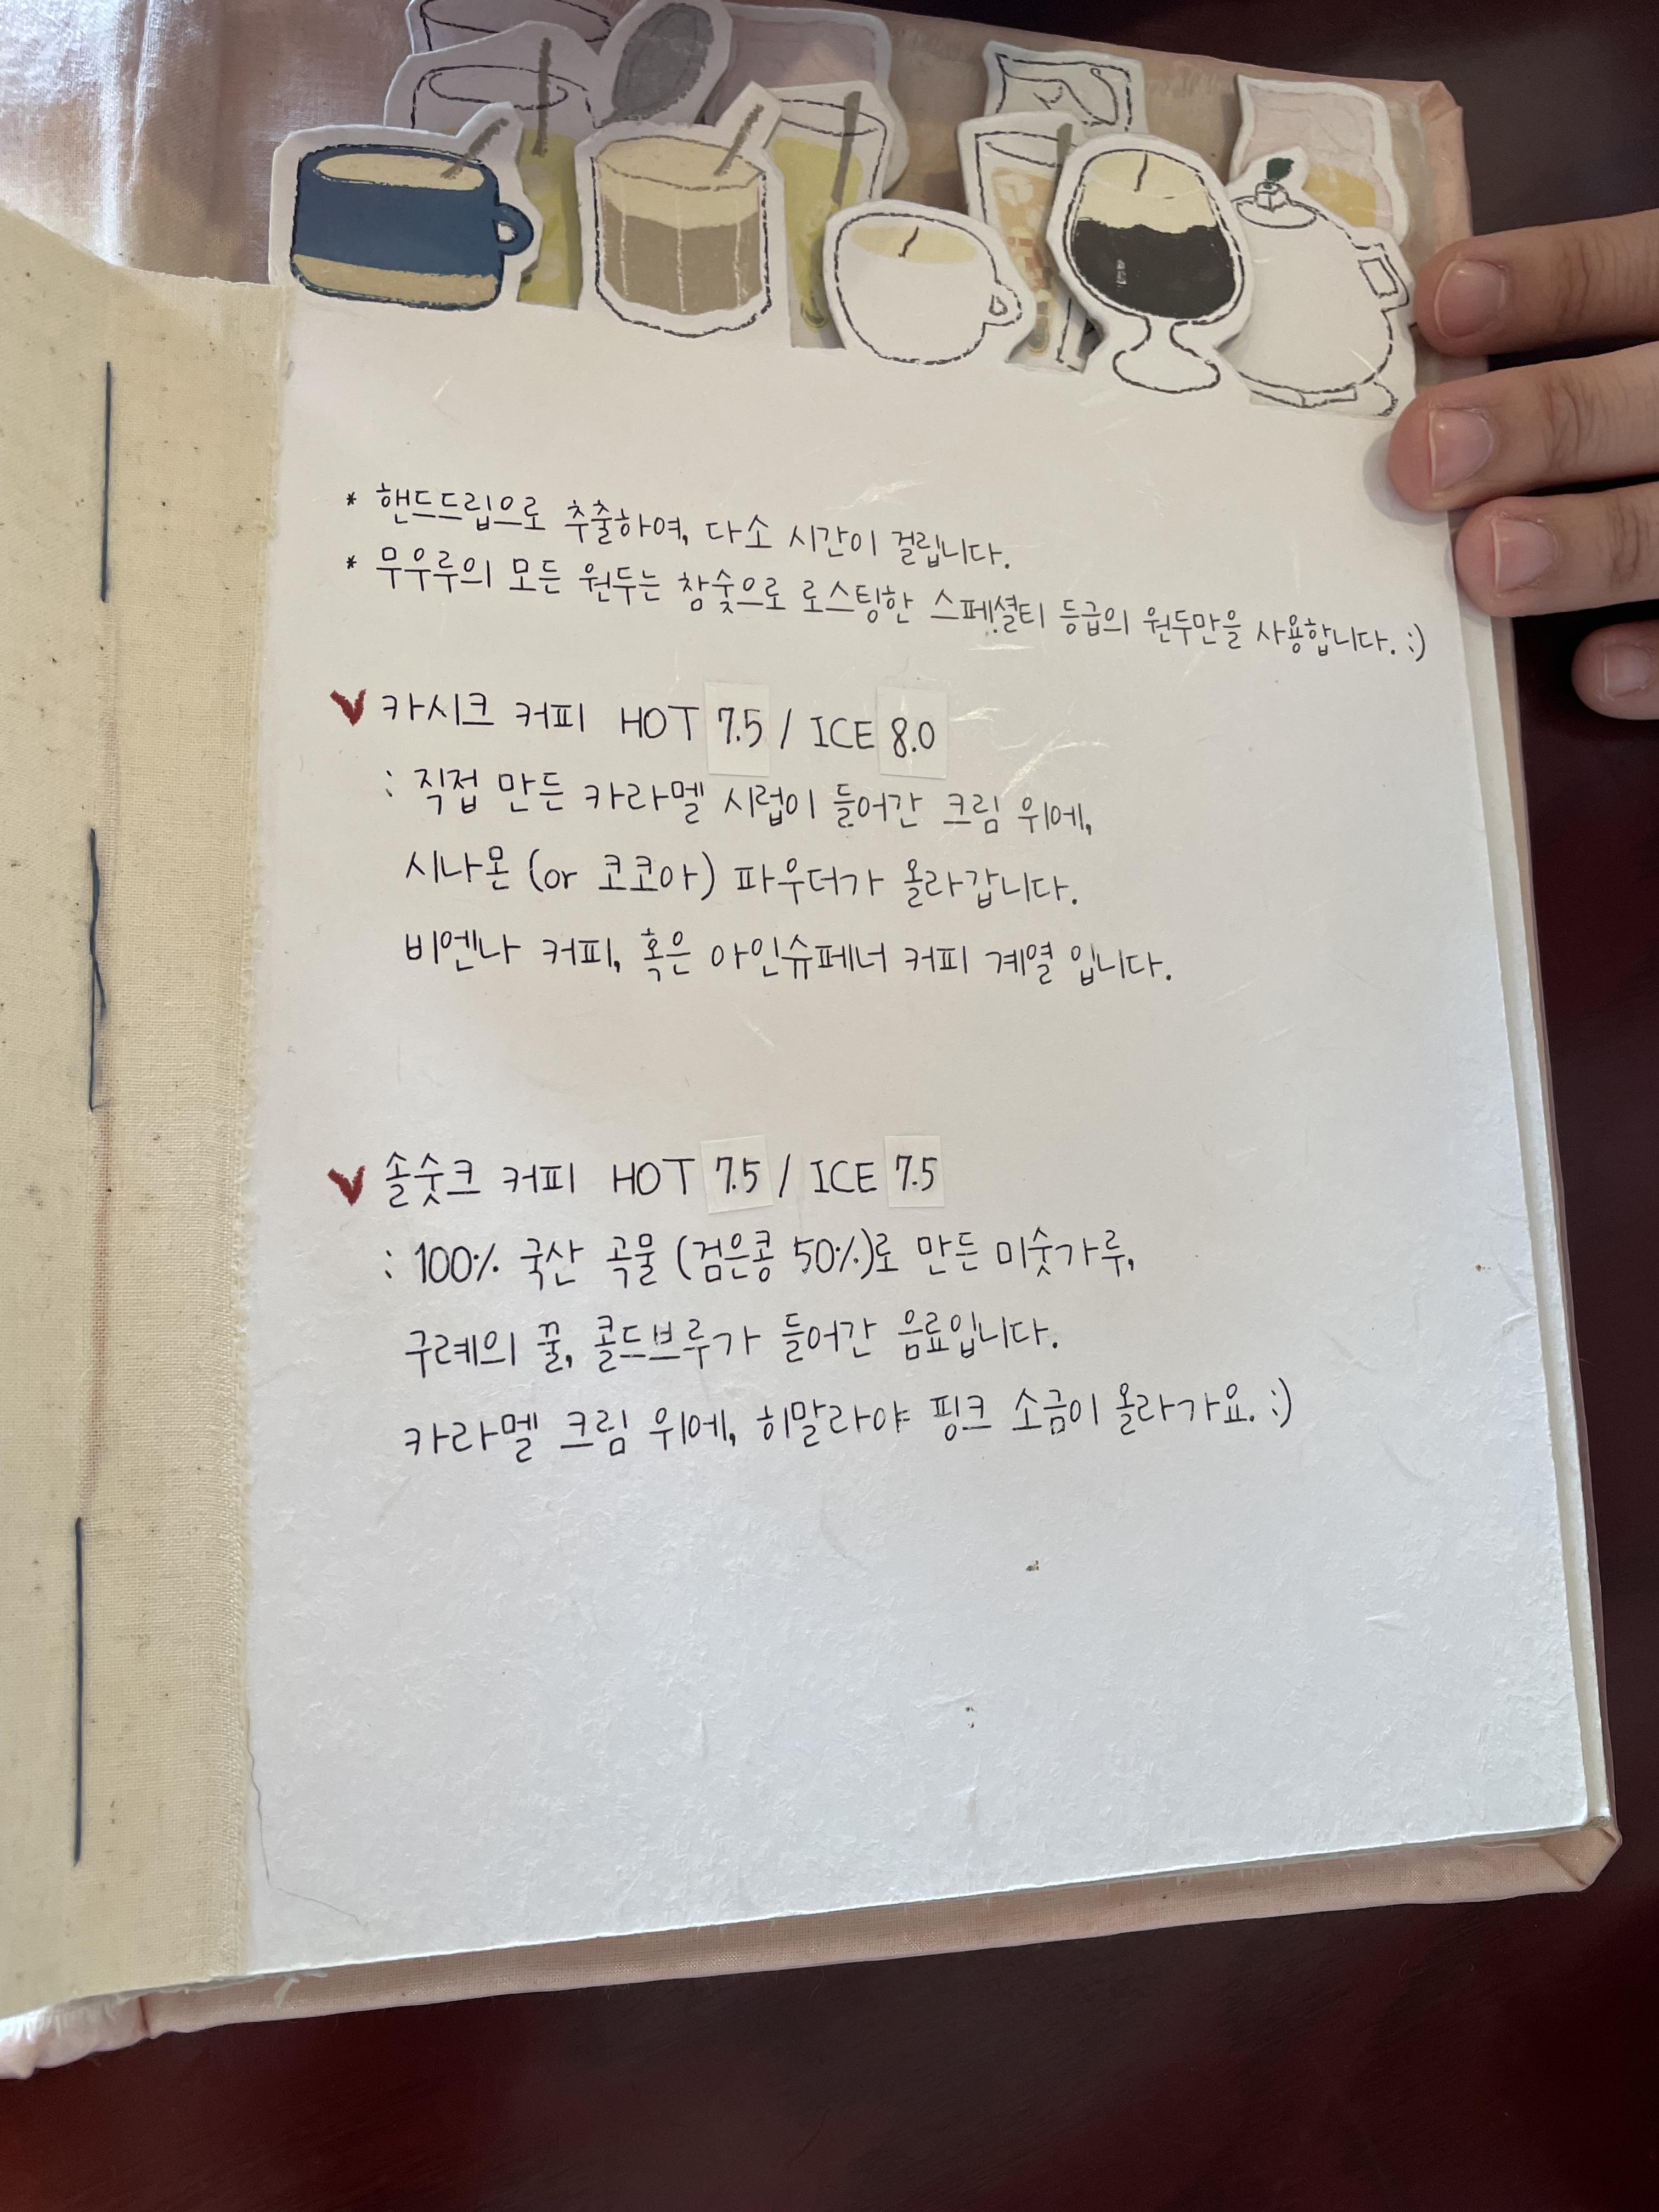 * 핸드드립으로 추출하여, 다소 시간이 걸립니다.
* 무우루의 모든 원두는 참숯으로 로스팅한 스페셜티 등급의 원두만을 사용합니다. :)
V 카시크 커피 HOT 7.5 / ICE 8.0
: 직접 만든 카라멜 시럽이 들어간 크림 위에,
시나몬 (or 코코아) 파우더가 올라갑니다.
비엔나 커피, 혹은 아인슈페너 커피 계열 입니다.
V 솔숫크 커피 HOT 7.5 / ICE 7.5
: 100% 국산 곡물 (검은콩 50%)로 만든 미숫가루,
구례의 꿀, 콜드브루가 들어간 음료입니다.
카라멜 크림 위에, 히말라야 핑크 소금이 올라가요. :)